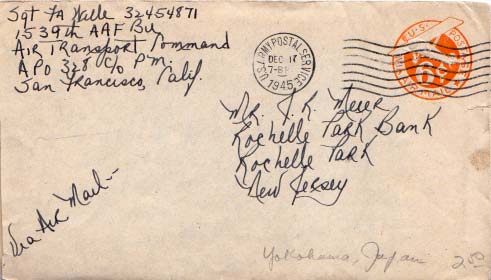 Sgt FA Halle 32454871
1539th AAF BU
Air Transport Command
APO 328 c/o P.M.
San Francisco, Calif.
U.S. ARMY POSTAL SERVICE
DEC 17
1945
U.S. POSTAGE
6¢
VIA AIR MAIL
Mr. J.K. Meier
Rochelle Park Bank
Rochelle Park
New Jersey
Via Air Mail-
Yokohama, Japan
2.50